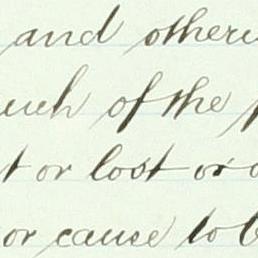 and otherw
uch of the p
t or lost or
or cause to b